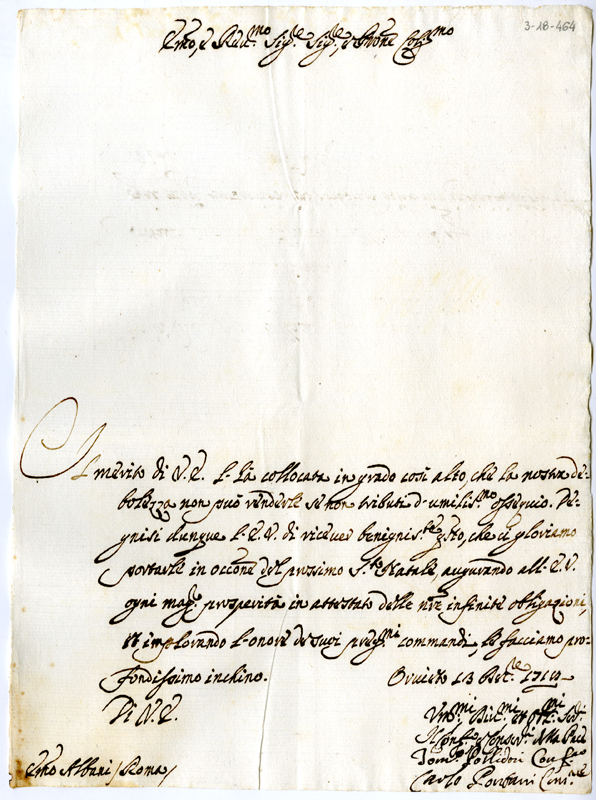 3-18-464
Em̃o, e Reu.mo Sig.re Sig.re, e Prõne Col.mo
Il merito di V.E. l'hà collocata in grado così alto, che la nostra de-
bolezza non può renderle se non tributi d'umiliss.mo ossequio. De-
gnisi dunque l'E.V. di riceuer benignis.te q.sto, che ci gloriamo
portarle in occõne del prossimo S.to Natale, augurando all'E.V.
ogni mag.r prosperità in attestato delle ñre infinite obligazioni,
et implorando l'onore de suoi preg.mi commandi, le facciamo pro-
fondissimo inchino. Oruieto 13 Xbr.e
Di V.E.
Vm̃i. Diu.mi et Obl.mi Ser.
Conser.
Dom.
Carlo
Em̃o Albani / Roma /